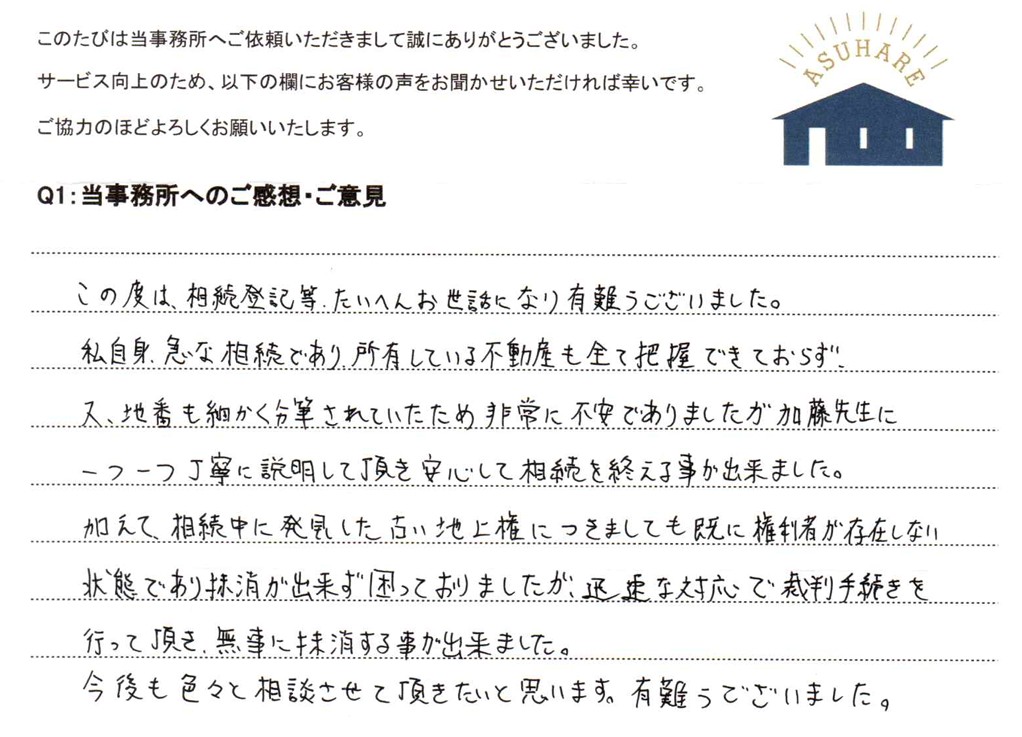 このたびは当事務所へご依頼いただきまして誠にありがとうございました。
サービス向上のため、以下の欄にお客様の声をお聞かせいただければ幸いです。
ご協力のほどよろしくお願いいたします。
ASUHARE
Q1:当事務所へのご感想・ご意見
この度は、相続登記等、たいへんお世話になり有難うございました。
私自身、急な相続であり、所有している不動産も全て把握できておらず、
又、地番も細かく分筆されていたため非常に不安でありましたが加藤先生に
一つ一つ丁寧に説明して頂き安心して相続を終える事が出来ました。
加えて、相続中に発見した古い地上権につきましても既に権利者が存在しない
状態であり抹消が出来ず困っておりましたが、迅速な対応で裁判手続きを
行って頂き、無事に抹消する事が出来ました。
今後も色々と相談させて頂きたいと思います。有難うございました。